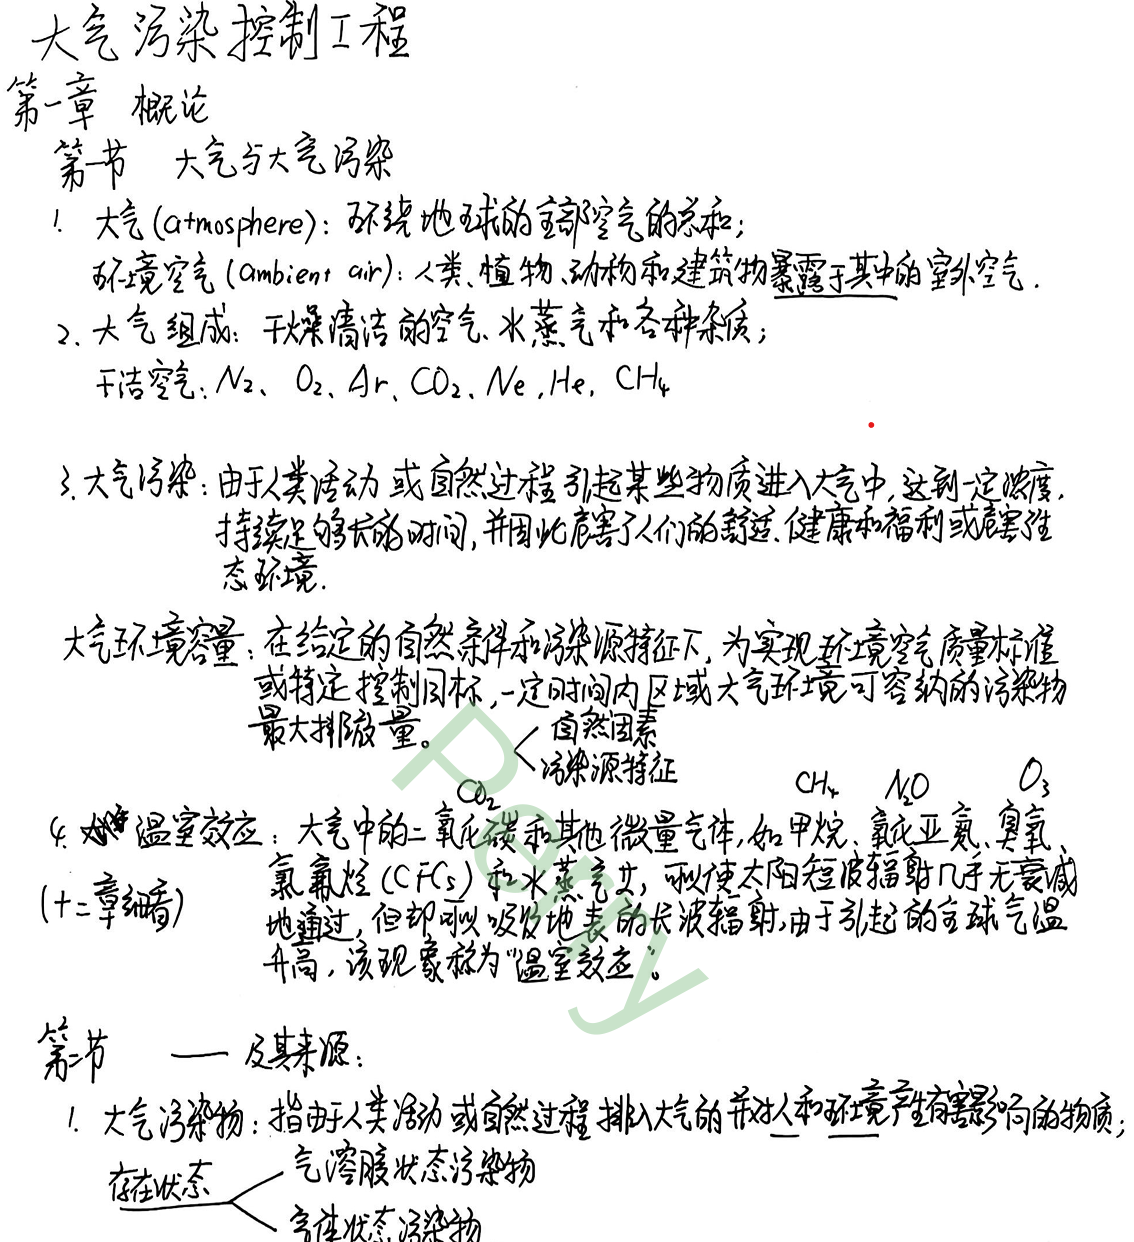 大气污染控制工程
第一章 概论
第一节 大气与大气污染
1. 大气(atmosphere): 环绕地球的全部空气的总和;
环境空气(ambient air): 人类、植物、动物和建筑物暴露于其中的室外空气.
2、大气组成: 干燥清洁的空气、水蒸气和各种杂质;
干洁空气: N₂、O₂、Ar、CO₂、Ne,He, CH₄
3、大气污染: 由于人类活动或自然过程引起某些物质进入大气中,达到一定浓度,
持续足够长的时间,并因此危害了人们的舒适、健康和福利或危害生
态环境.
大气环境容量: 在给定的自然条件和污染源特征下,为实现环境空气质量标准
或特定控制目标,一定时间内区域大气环境可容纳的污染物
最大排放量。
自然因素
污染源特征
CO₂ CH₄ N₂O O₃
4. 温室效应: 大气中的二氧化碳和其他微量气体,如甲烷、氧化亚氮、臭氧、
(十二章细看)
氯氟烃(CFCs)和水蒸气等,可以使太阳短波辐射几乎无衰减
地通过,但却可以吸收地表的长波辐射,由于引起的全球气温
升高,该现象称为“温室效应”。
Perry
第二节 —— 及其来源:
1. 大气污染物: 指由于人类活动或自然过程排入大气的并对人和环境产生有害影响的物质;
存在状态
气溶胶状态污染物
气体状态污染物